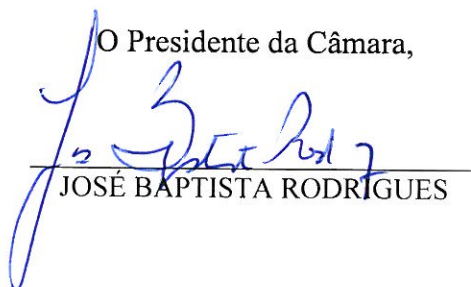 O Presidente da Câmara,
JOSÉ BAPTISTA RODRIGUES